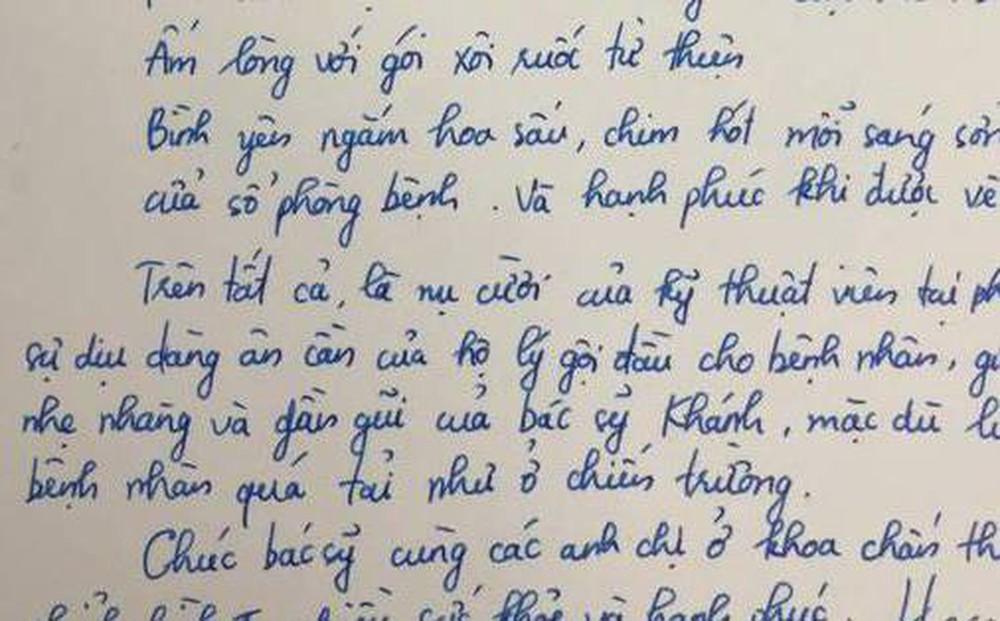 Ấm lòng với gói xôi ruốc từ thiện
Bình yên ngắm hoa sấu, chim hót mỗi sáng sớm
cửa sổ phòng bệnh. Và hạnh phúc khi được về
Trên tất cả, là nụ cười của kỹ thuật viên tại
sự dịu dàng ân cần của hộ lý gội đầu cho bệnh nhân,
nhẹ nhàng và gần gũi của bác sỹ Khánh, mặc dù
bệnh nhân quá tải như ở chiến trường.
Chúc bác sỹ cùng các anh chị ở khoa chấn
sức khỏe và hạnh phúc.